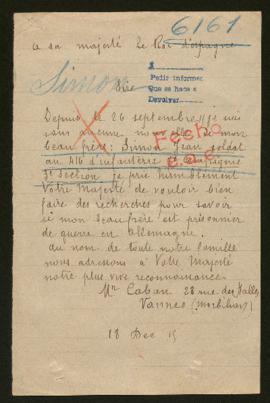 6161
a sa majesté Le Roi d'espagne
Simon
Sire
Pedir informes
Que se haga a
Devolver
Depuis le 26 septembre je suis
sans aucune nouvelle de mon
beau frère: Simon Jean soldat
au 116 d'infanterie Compagnie
3e Section je prie humblement
Votre Majesté de vouloir bien
faire des recherches pour savoir
si mon beau frère est prisonnier
de guerre en allemagne.
au nom de toute notre famille
nous adressons à Votre Majesté
notre plus vive reconnaissance
Mr Caban 28 rue des Halles
Vannes (Morbihan)
18 Dec 15